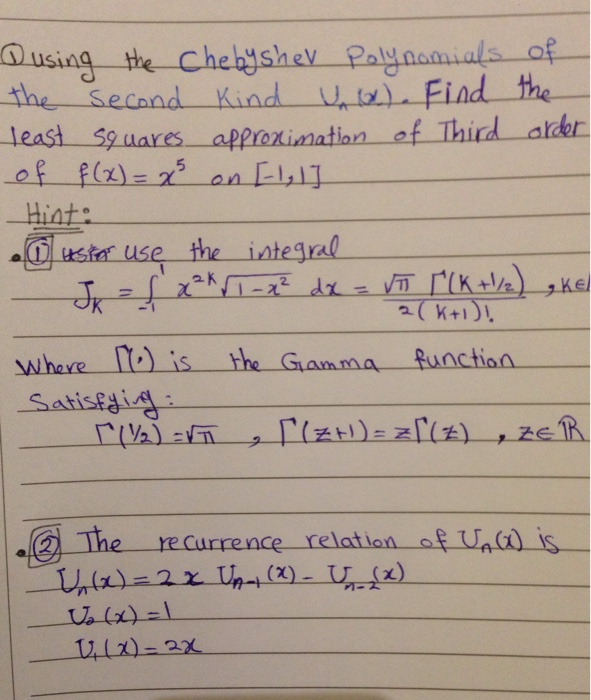 ① using the Chebyshev Polynomials of
the Second Kind Uₙ(x). Find the
least squares approximation of Third order
of f(x) = x⁵ on [-1,1]
Hint:
• ① use the integral
J_K = ∫₋₁¹ x²ᴷ √(1-x²) dx = √π Γ(K+1/2) / 2(K+1)! , K∈
Where Γ(·) is the Gamma function
Satisfying:
Γ(1/2) = √π , Γ(z+1) = zΓ(z) , z∈ℝ
• ② The recurrence relation of Uₙ(x) is
Uₙ(x) = 2x Uₙ₋₁(x) - Uₙ₋₂(x)
U₀(x) = 1
U₁(x) = 2x